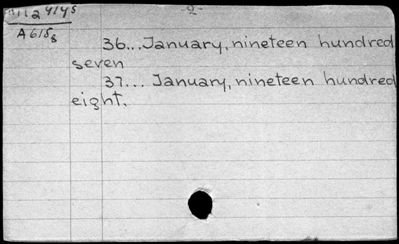 -2-
A615s
36...January, nineteen hundred
seven
37... January, nineteen hundred
eight.